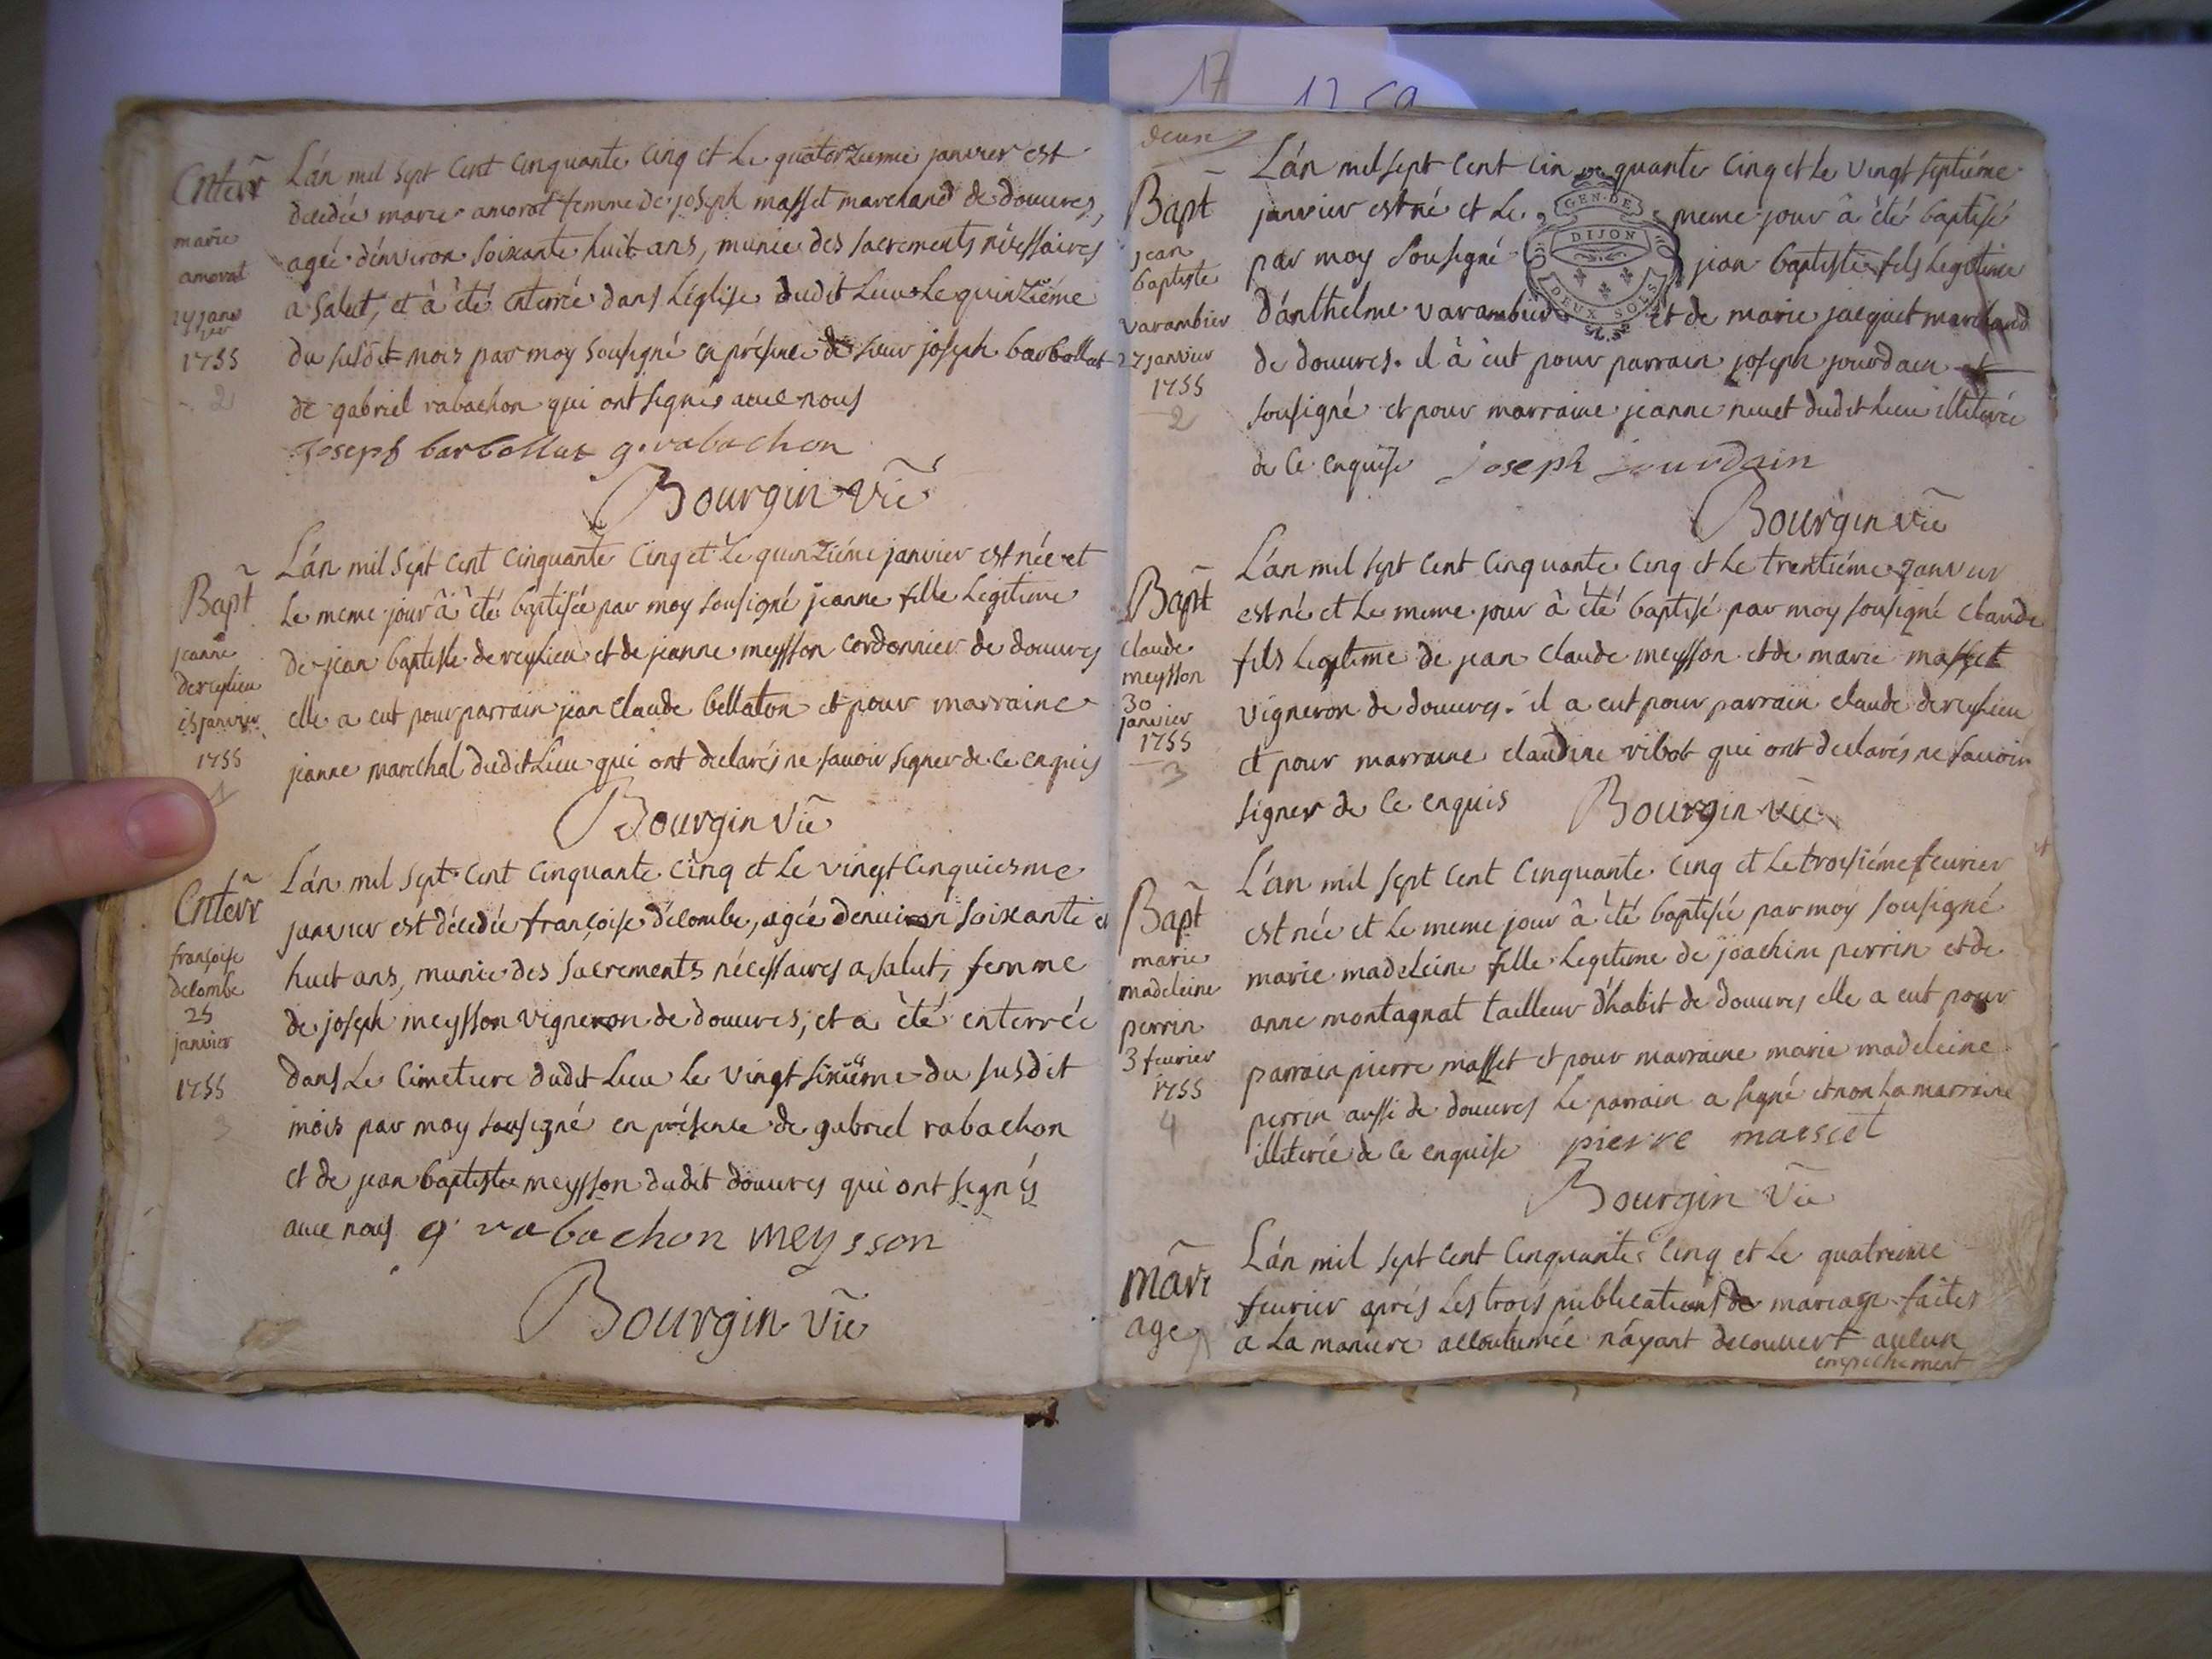 Enterr
marie
amorat
14 janv
ier
1755
2
L'án mil sept cent cinquante cinq et le quatorziéme janvier est
décédée marie amorat femme de joseph masset marchand de douvres,
agée d'énviron soixante huit ans, munie des sacrements néessaires
a salut, et à été enterrée dans l'église dudit lieu le quinziéme
du susdit mois par moy sousigné en présence de sieur joseph barbollat
de gabriel rabachon qui ont signés avec nous
Joseph barbollat g. rabachon
Bourgin vic
Bapt
jeanne
dereylieu
15 janvier
1755
1
L'án mil sept cent cinquante cinq et le quinziéme janvier est née et
le meme jour à été baptisée par moy sousigné jeanne fille legitime
de jean baptiste dereylieu et de jeanne meysson cordonnier de douvres
elle a eut pour parrain jean claude bellaton et pour marraine
jeanne marechal dudit lieu qui ont declarés ne savoir signer de ce enquis
Bourgin vic
Enterr
françoise
delombe
25
janvier
1755
3
L'án mil sept cent cinquante cinq et le vingt cinquiesme
janvier est décédée françoise délombe, agée denviron soixante et
huit ans, munie des sacrements nécessaires a salut, femme
de joseph meysson vigneron de douvres, et a été enterrée
dans le cimetiere dudit lieu le vingt sixiéme du susdit
mois par moy sousigné en présence de gabriel rabachon
et de jean baptiste meysson dudit douvres qui ont signés
avec nous g rabachon meysson
Bourgin vic
17
deux
Bapt
jean
baptiste
varambier
27 janvier
1755
2
GEN. DE
DIJON
DEUX SOLS
L'án mil sept cent cinquante cinq et le vingt septiéme
janvier est né et le meme jour à été baptisé
par moy sousigné jean baptiste fils legitime
d'ánthelme varambier et de marie jacquet marchand
de douvres. il à eut pour parrain joseph jourdain et
sousigné et pour marraine jeanne nuuet dudit lieu illiterée
de ce enquise joseph jourdain
Bourgin vic
Bapt
claude
meysson
30
janvier
1755
3
L'án mil sept cent cinquante cinq et le trentiéme janvier
est né et le meme jour à été baptisé par moy sousigné claude
fils legitime de jean claude meysson et de marie masset
vigneron de douvres. il a eut pour parrain claude dereylieu
et pour marraine claudine vibot qui ont declarés ne savoir
signer de ce enquis Bourgin vic
Bapt
marie
madeleine
perrin
3 fevrier
1755
4
L'án mil sept cent cinquante cinq et le troisiéme fevrier
est née et le meme jour à été baptisée par moy sousigné
marie madeleine fille legitime de joachim perrin et de
anne montagnat tailleur d'habit de douvres elle a eut pour
parrain pierre masset et pour marraine marie madeleine
perrin aussi de douvres le parrain a signé et non la marraine
illiterée de ce enquise pierre masset
Bourgin vic
mari
age
L'án mil sept cent cinquante cinq et le quatreime
fevrier aprés les trois publications de mariage faites
a la maniere accoutumée n'áyant decouvert aucun
empechement